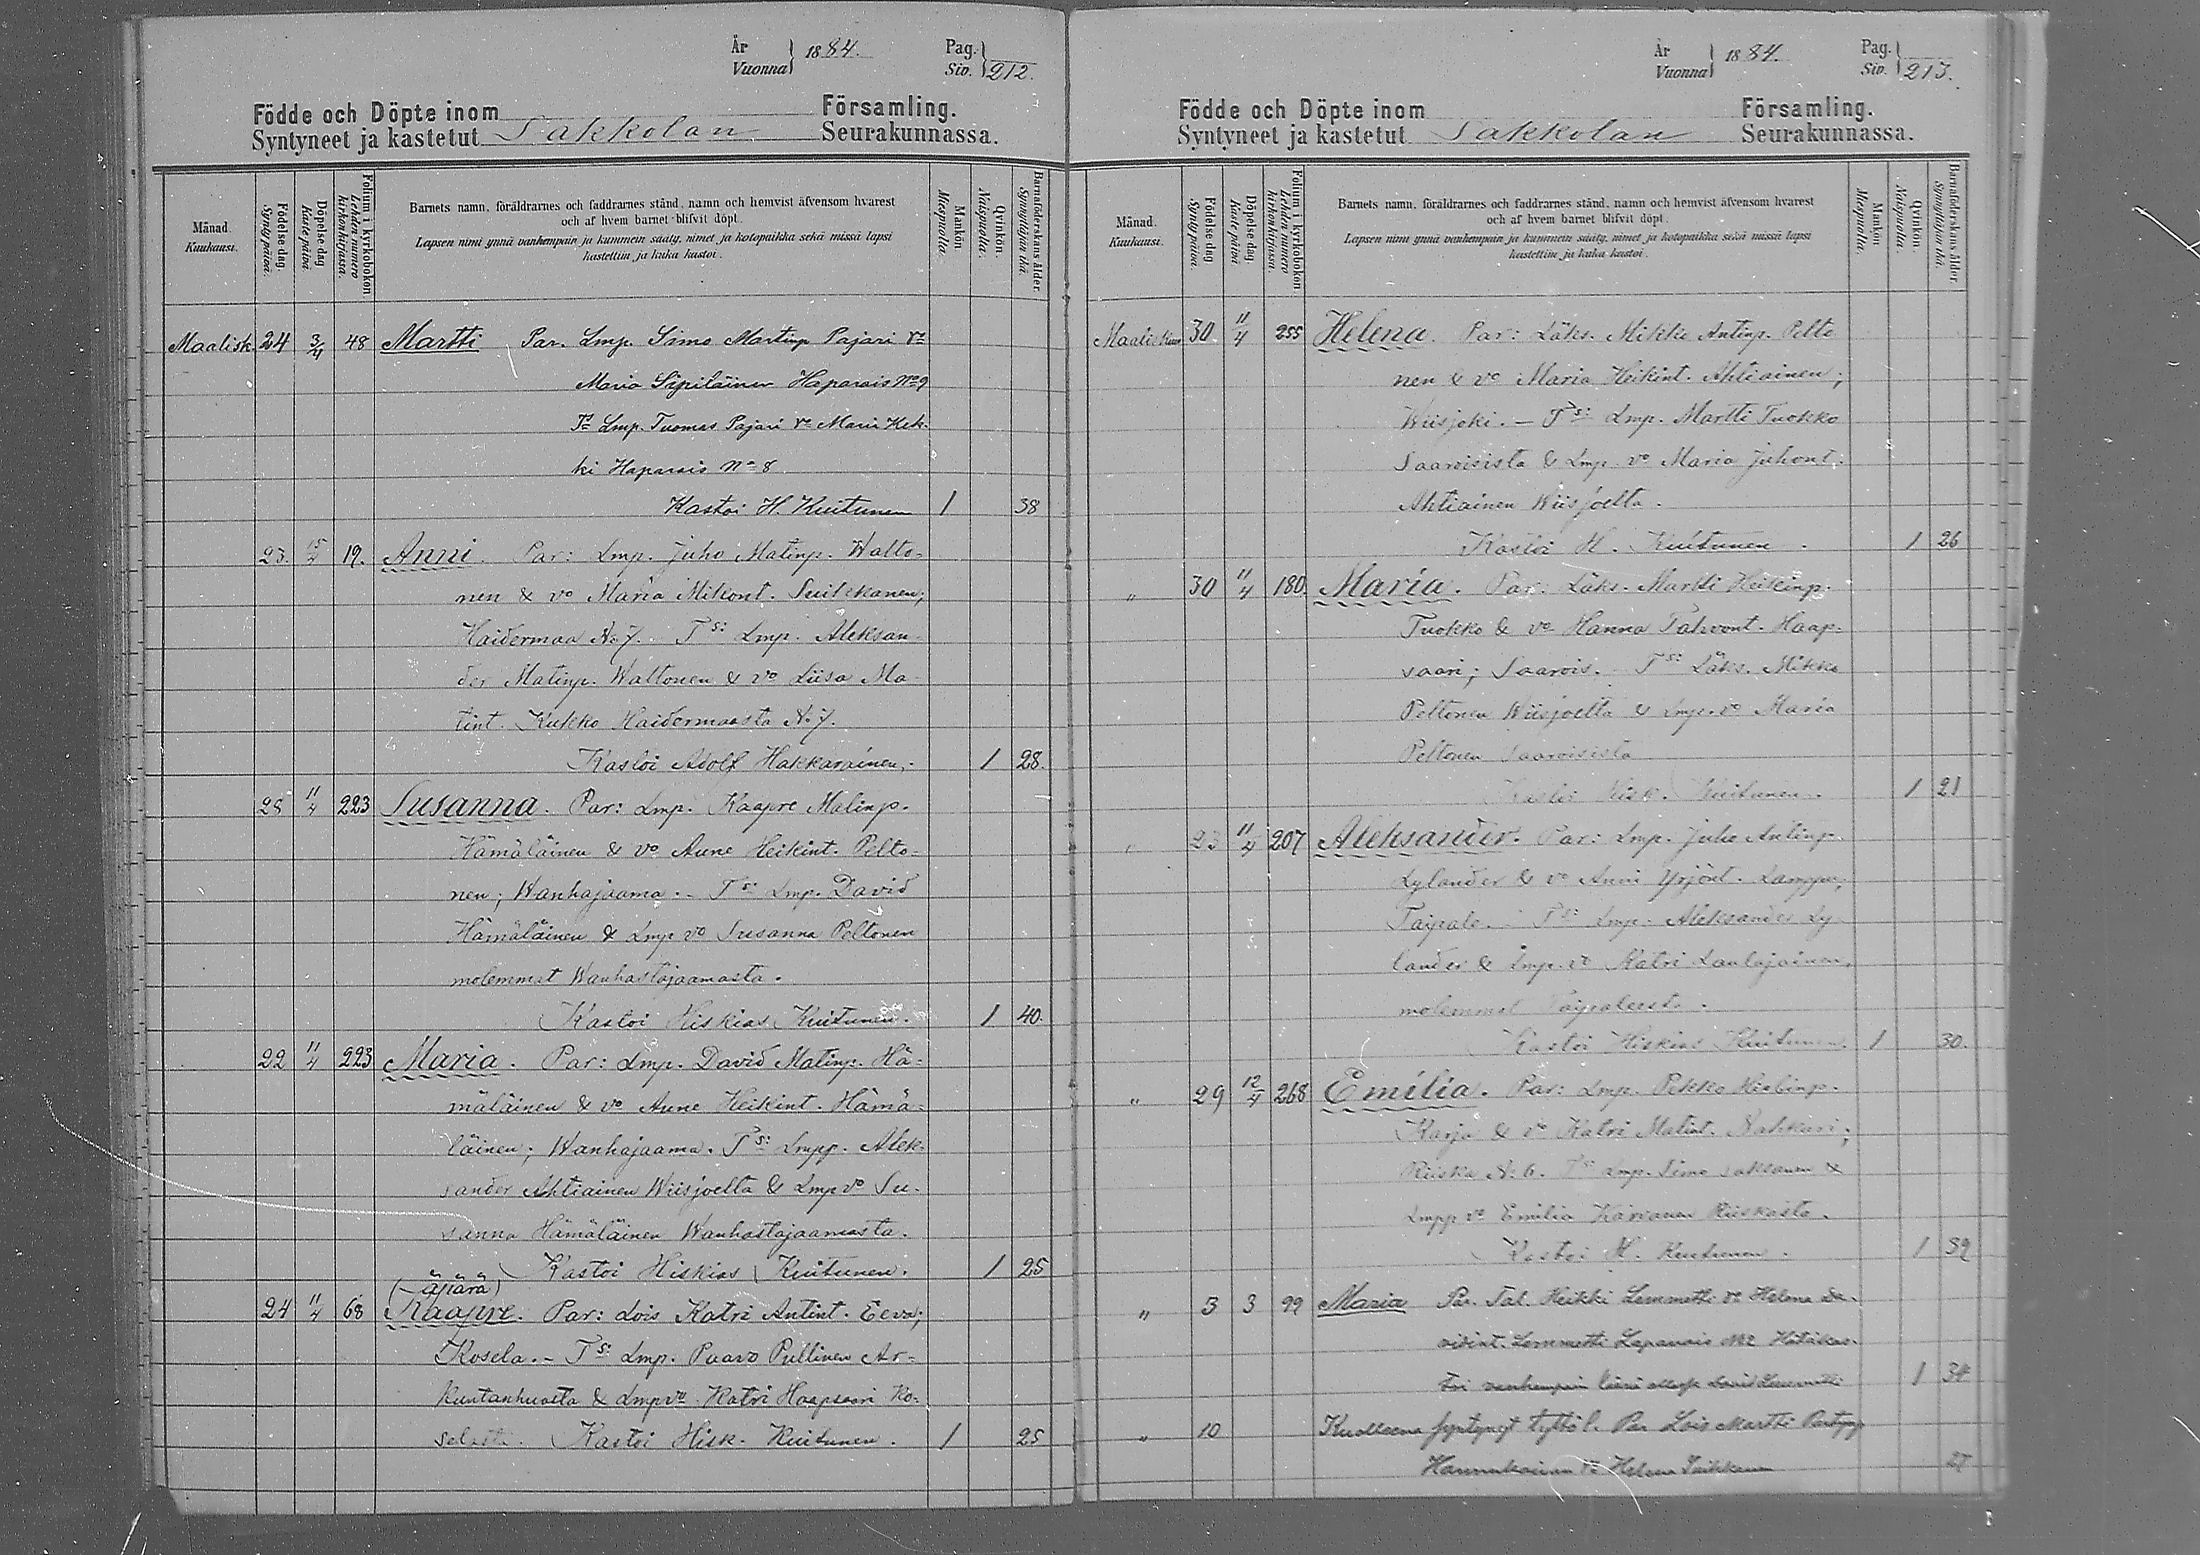 År
Vuonna } 1884.
Pag.
Siv. } 212.
Födde och Döpte inom Församling.
Syntyneet ja kastetut Sakkolan Seurakunnassa.
Månad.
Kuukausi.
Födelse-dag.
Synty päivä.
Döpelse-dag
Kaste päivä.
Folium i kyrkoboken
Lehden numero
kirkonkirjassa.
Barnets namn, föräldrarnes och faddrarnes stånd, namn och hemvist äfvensom hvarest
och af hvem barnet blifvit döpt.
Lapsen nimi ynnä vanhempain ja kummein sääty, nimet ja kotopaikka sekä missä lapsi
kastettiin ja kuka kastoi.
Mankön.
Miespuolta.
Qvinkön.
Naispuolta.
Barnaföderskans ålder.
Synnyttäjän ikä.
Maalisk. 24 3/4 48 Martti Par. Lmp. Simo Martinp Pajari vo
Maria Sipiläinen Haparais No 9
Ts Lmp. Tuomas Pajari vo Maria Kek-
ki Haparais No 8
Kastoi H. Kuitunen 1 38
23. 15/4 19. Anni. Par: Lmp. Juho Matinp. Walto-
nen & vo Maria Mikont. Suikkanen;
Haidermaa No 7. Tsi Lmp. Aleksan-
der Matinp. Waltonen & vo Liisa Ma-
tint. Kukko Haidermaasta No 7.
Kastoi Adolf Hakkarainen. 1 28.
28 11/4 223 Susanna. Par: Lmp. Kaapre Matinp.
Hämäläinen & vo Aune Heikint. Pelto-
nen; Wanhajaama. - Tsi Lmp. David
Hämäläinen & Lmp vo Susanna Peltonen
molemmat Wanhastajaamasta.
Kastoi Hiskias Kuitunen. 1 40.
22 11/4 223 Maria. Par: Lmp. David Matinp. Hä-
mäläinen & vo Aune Heikint. Hämä-
läinen; Wanhajaama. Tsi Lmpp. Alek-
sander Ahtiainen Wiisjoelta & Lmp vo Su-
sanna Hämäläinen Wanhastajaamasta.
Kastoi Hiskias Kuitunen. 1 25
(äpärä)
24 11/4 68 Kaapre. Par: Lois Katri Antint. Eeva;
Kosela. - Tsi Lmp. Paavo Pullinen Ar-
kuntanhuolta & Lmp vo Katri Haapsaari Ko-
selasta. Kastoi Hisk. Kuitunen. 1 25
År
Vuonna } 1884.
Pag.
Siv. } 213.
Födde och Döpte inom Församling.
Syntyneet ja kastetut Sakkolan Seurakunnassa.
Månad.
Kuukausi.
Födelse-dag
Synty päivä.
Döpelse-dag.
Kaste päivä.
Folium i kyrkoboken
Lehden numero
kirkonkirjassa.
Barnets namn, föräldrarnes och faddrarnes stånd, namn och hemvist äfvensom hvarest
och af hvem barnet blifvit döpt.
Lapsen nimi ynnä vanhempain ja kummein sääty, nimet ja kotopaikka sekä missä lapsi
kastettiin ja kuka kastoi.
Mankön.
Miespuolta.
Qvinkön.
Naispuolta.
Barnaföderskans ålder.
Synnyttäjän ikä.
Maaliskuu 30. 11/4 255 Helena. Par: Läks. Mikko Antinp. Pelto
nen & vo Maria Heikint. Ahtiainen;
Wiisjoki. - Tsi Lmp. Martti Tuokko
Saaroisista & Lmp. vo Maria Juhont.
Ahtiainen Wiisjoelta.
Kastoi H. Kuitunen. 1 26
" 30 11/4 180. Maria. Par: Läks. Martti Heikinp.
Tuokko & vo Hanna Tahvont. Haap-
saari; Saarois. - Tsi Läks. Mikko
Peltonen Wiisjoelta & Lmp. vo Maria
Peltonen Saaroisista
Kastoi Hisk. Kuitunen. 1 21
" 23 11/4 207 Aleksander. Par: Lmp. Juho Antinp.
Lylander & vo Anni Yrjönt. Lamppu;
Taipale. - Tsi Lmp. Aleksander Ly-
lander & Lmp. vo Katri Laulajainen,
molemmat Taipaleesta.
Kastoi Hiskias Kuitunen. 1 30.
" 29 12/4 268 Emilia. Par: Lmp. Pekko
Karja & vo Katri Matint. Nahkuri;
Riiska No 6. Tsi Lmp. Simo Saksanen &
Lmpp vo Emilia Karvanen Riiskasta.
Kastoi H. Kuitunen. 1 39
" 3 3 99 Maria Par. Tal. Heikki Lemmetti vo Helena Da-
vidint. Lemmetti Lapanais No 2 Hätäkas-
toi vanhempain David Lemmetti 1 34
" 10 Kuolleena syntynyt tyttö l. Par Lois Martti
Hannukainen vo Helena Suikkanen 27